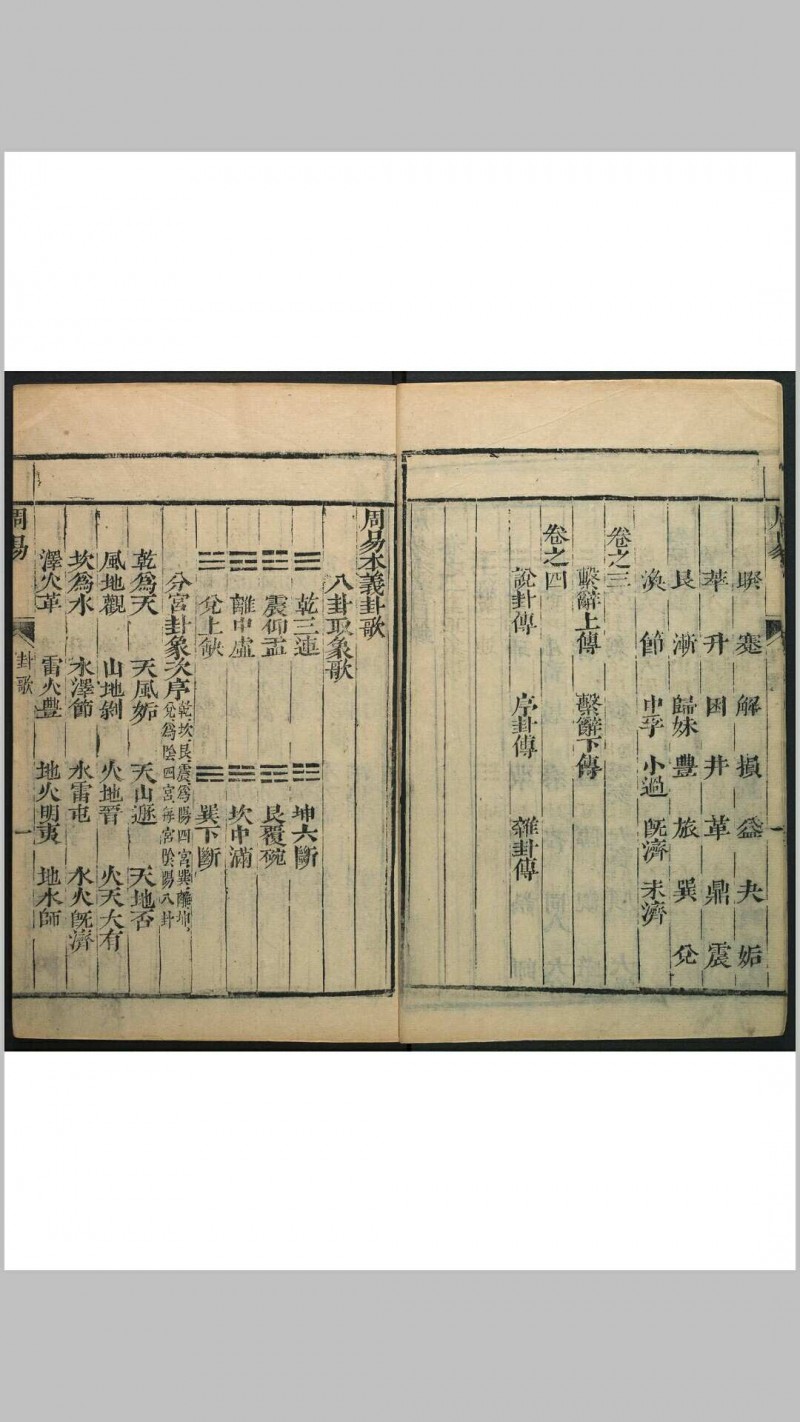 周易
睽 蹇 解 損 益 夬 姤
萃 升 困 井 革 鼎 震
艮 漸 歸妹 豐 旅 巽 兌
渙 節 中孚 小過 旣濟 未濟
卷之三
繫辭上傳 繫辭下傳
卷之四
說卦傳 序卦傳 雜卦傳
周易本義卦歌
八卦取象歌
☰ 乾三連 ☷ 坤六斷
☳ 震仰盂 ☶ 艮覆碗
☲ 離中虛 ☵ 坎中滿
☱ 兌上缺 ☴ 巽下斷
分宮卦象次序 乾坎艮震爲陽四宮巽離坤
兌爲陰四宮每宮陰陽八卦
乾爲天 天風姤 天山遯 天地否
風地觀 山地剝 火地晉 火天大有
坎爲水 水澤節 水雷屯 水火旣濟
澤火革 雷火豐 地火明夷 地水師
周易 卦歌 一